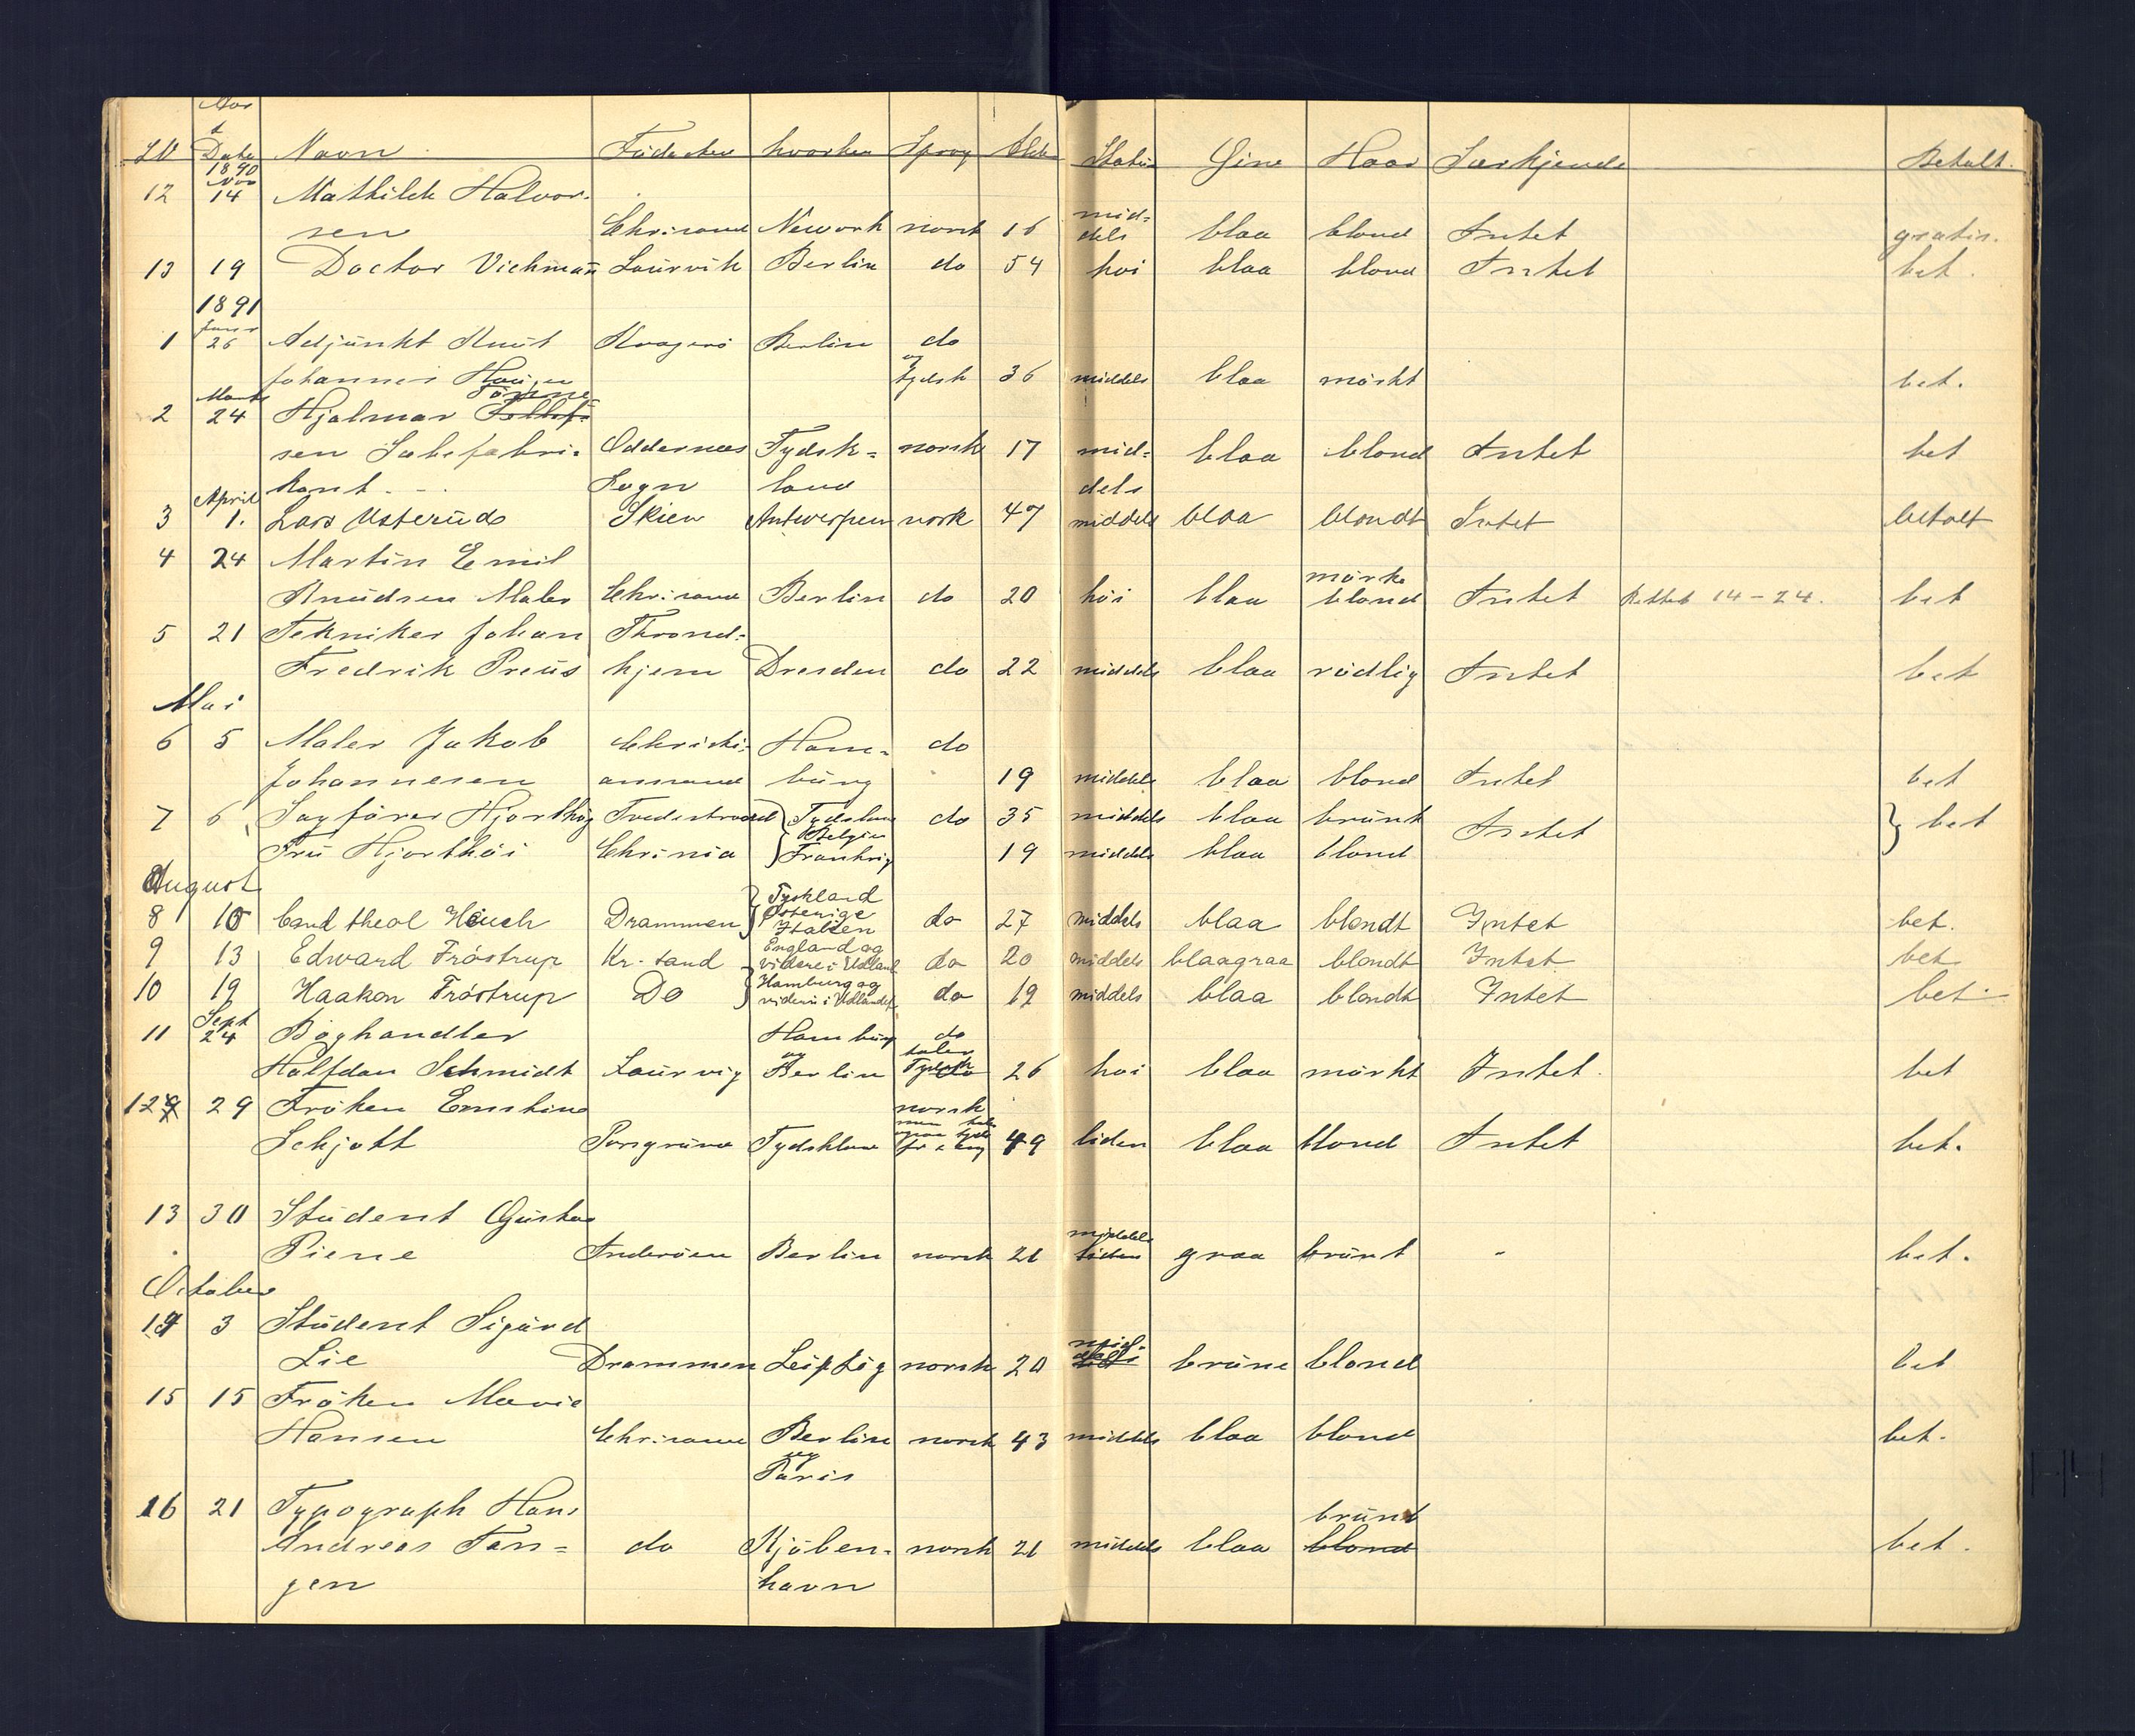 Aar
&
LN Date Navn Födested hvorhen Sprog Alder Statur Öine Haar Særkjende Betalt.
1890
Nov
12 14 Mathilde Halvor-
sen Chrisand Nework norsk 16 mid- dels blaa blond Intet gratis.
13 19 Doctor Vichmann Laurvik Berlin do 54 høi blaa blond Intet bet.
1891
Januar
1 26 Adjunkt Knut Kragerö Berlin do
Johannes Haugen og tydsk 36 middels blaa mörkt bet.
Marts
2 24 Hjalmar
sen Sæbefabri- Oddernæs Tydsk- norsk 17 mid- blaa blond Intet bet
kant Sogn land dels
April
3 1. Lars Usterud Skien Antwerpen norsk 47 middels blaa blondt Intet betalt
4 24 Martin Emil
Knudsen Maler Chrisand Berlin do 20 höi blaa mörke blond Intet Rettet 14-24. bet
5 21 Tekniker Johan Thrond-
Fredrik Preus hjem Dresden do 22 middels blaa rödlig Intet bet
Mai
6 5 Maler Jakob Christi- Ham- do
Johannesen ansand burg 19 middels blaa blond Intet bet
7 6 Sagförer Hjorthöy Tvedestrand Tydskland do 35 middels blaa brunt Intet bet
Belgien
Fru Hjorthöi Chrinia Frankrig 19 middels blaa blond
August
8 10 Cand theol Heuch Drammen Tyskland Österrige Italien do 27 middels blaa blondt Intet bet.
9 13 Edward Fröstrup Kr. sand England og videre i Udland do 20 middels blaagraa blondt Intet bet
10 19 Haakon Fröstrup Do Hamburg og videre i Udlandet do 19 middels blaa blondt Intet bet.
Sept
11 24 Boghandler Hamburg do
Halfdan Schmidt Laurvig og Berlin taler Tydsk 26 høi blaa mörkt Intet. bet
12 29 Fröken Ernstine norsk
Schjött Porsgrund Tydskland fr & eng 49 liden blaa blond Intet bet.
13 30 Student Gustav
Piene Inderöen Berlin norsk 21 middels liden graa brunt - bet.
October
14 3 Student Sigurd
Lie Drammen Leipzig norsk 20 mid- dels brune blond bet
15 15 Fröken Marie
Hansen Chrisand Berlin norsk 43 middels blaa blond bet.
og
Paris
16 21 Typograph Hans brunt
Andreas Tan- do Kjöben- norsk 21 middels blaa blond bet.
gen havn